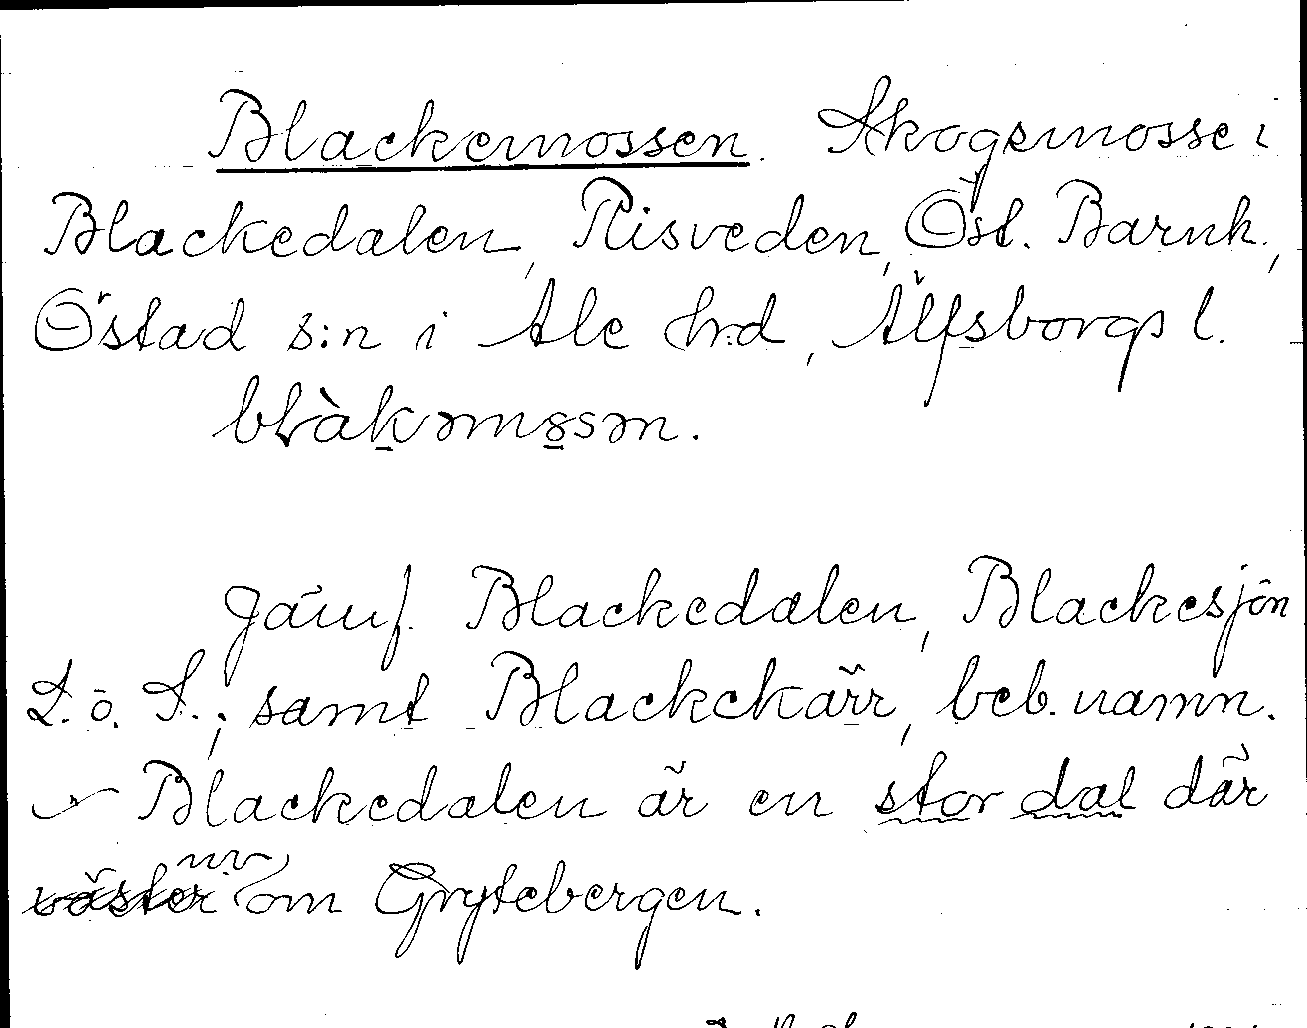 Blackemossen. Skogsmosse i
Blackedalen, Risveden, Öst. Barnh.,
Östad s:n i Ale hrd, Älfsborgs l.
blàkəm8sən.
Jämf. Blackedalen, Blackesjön
L. ö. S.; samt Blackekärr, beb. namn.
Blackedalen är en stor dal där
väster nv om Grytebergen.